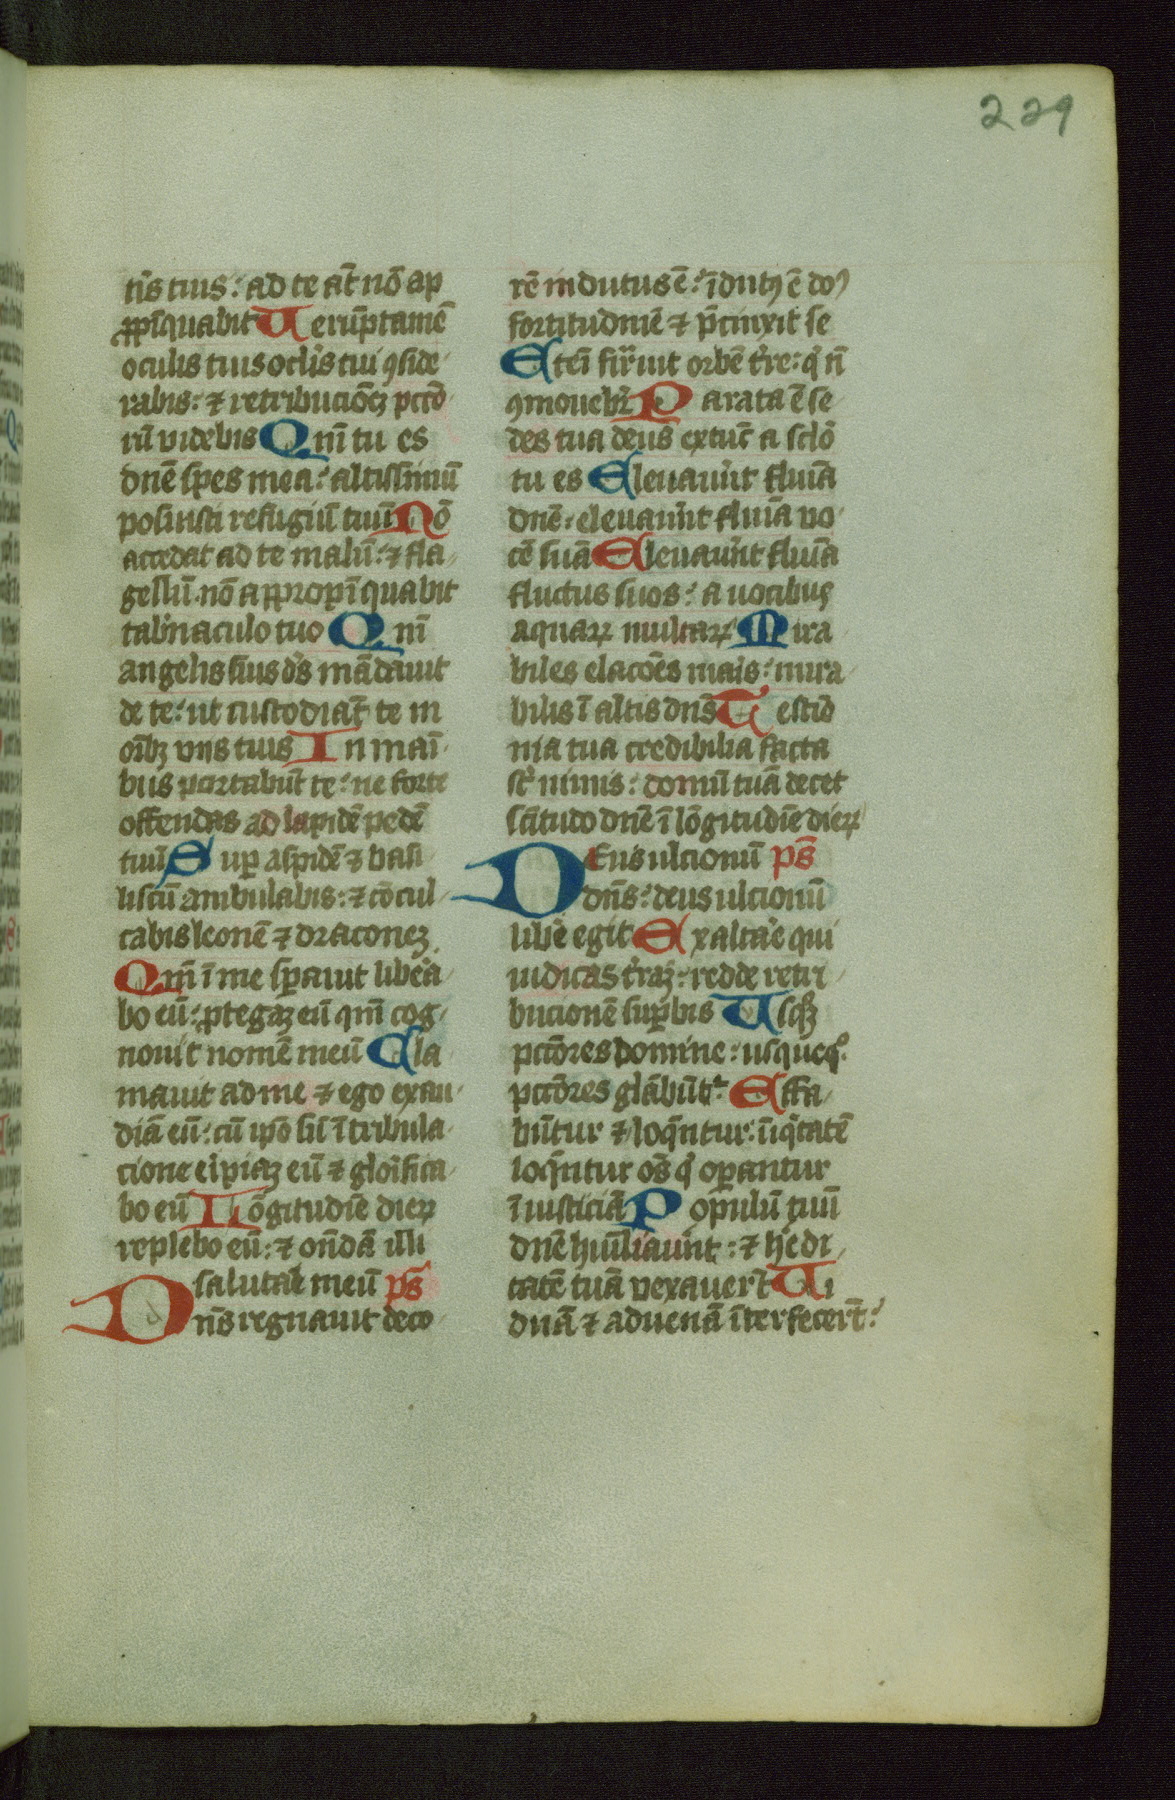 229
tis tuis: ad te at̄ nō ap
ꝓpīquabit Uerūptamē
oculis tuis oclis tui ꝯside
rabis: ⁊ retribucōēꝫ pctō
rū videbis Qm̄ tu es
dn̄e spes mea: altissimū
posuisti refugiū tuū Nō
accedat ad te malū: ⁊ fla
gellū nō appropīquabit
tab̾naculo tuo Qm̄
angelis suis d̾s mādauit
de te: ut custodiāt te in
oībꝫ viis tuis In maī
bus portabūt te: ne forte
offendas ad lapidē pedē
tuū Sup̱ aspidē ⁊ basi
liscū ambulabis: ⁊ cōcul
cabis leonē ⁊ draconeꝫ
Qm̄ ī me sp̱auit lib̾a
bo eū: ꝓtegaꝫ eū qm̄ cog
nouit nomē meū Cla
mauit ad me ⁊ ego exau
diā eū: cū ip̄o sū ī tribula
cione eipiaꝫ eū ⁊ glorifica
bo eū Lōgitudīe dieꝝ
replebo eū: ⁊ on̄dā illi
salutare meū ps̄
Dn̄s regnauit deco
rē indutus ē: īdutꝰ ē dōs
fortitudinē ⁊ p̄cinxit se
Eteī firmuit orbē t̾re: q̾ n̄
ꝯmouebr̄ Parata ē se
des tua deus extūc a sclō
tu es Eleuauūt flumīa
dn̄e: eleuauūt flumīa vo
cē suā Eleuauūt flumīa
fluctus suos: a uocibus
aquaꝝ multaꝝ Mira
biles elacōes maris: mira
bilis ī altis dn̄s Testīo
nia tua credibilia facta
st̄ nimis: domū tuā decet
sc̄itudo dn̄e ī lōgitudīe dieꝝ
Deus ulcionū ps̄
dn̄s: deus ulcionū
lib̾e egit Exaltare qui
iudicas t̾raꝫ: redde retri
bucionē sup̱bis Usqꝫ
pctōres domine: usquequo
pctōres glābūtᷣ Effa
būtur ⁊ loquētur: īiq̾tatē
loquētur oēs q̾ op̱antur
ī iusticiā Popīulū tuū
dn̄e humiliauūt: ⁊ h̾edi
tatē tuā vexauerūt Ui
duā ⁊ aduenā īterfecerūt: